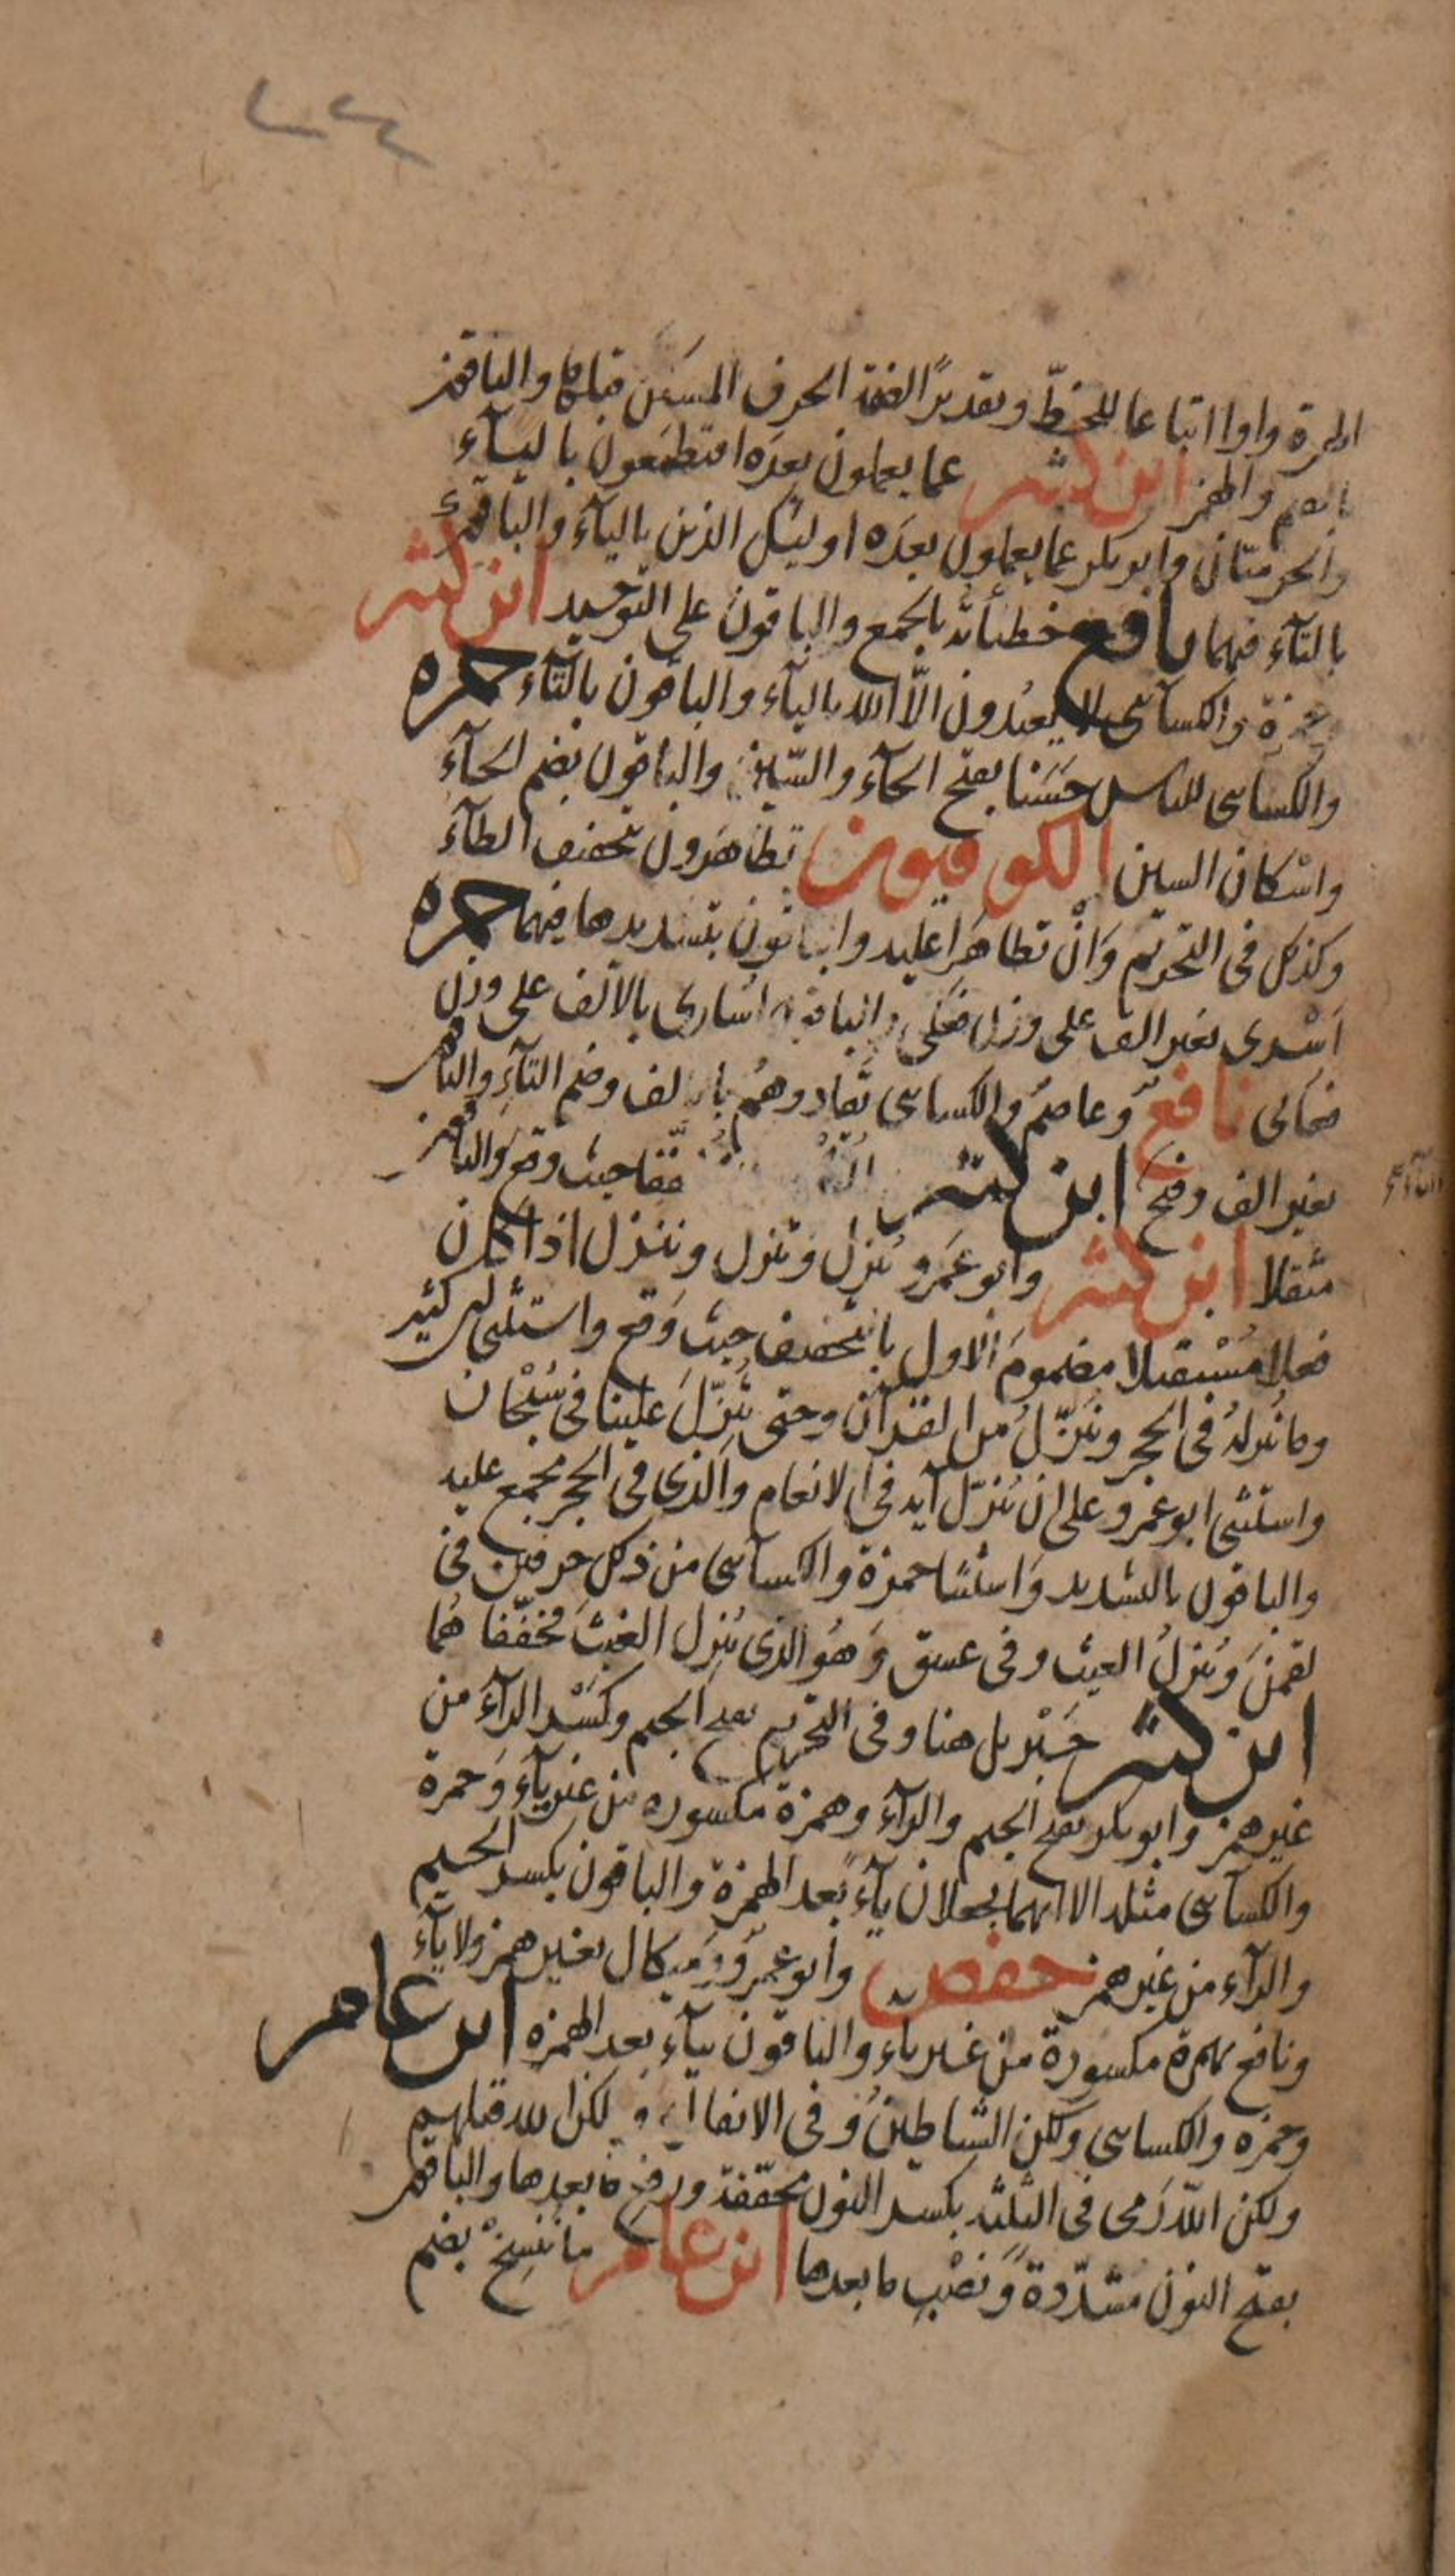 الهمزة واوا اتباعا للخطّ وتقديرًا لضمة الحرف المسكن قبلها والباقون
بالضم والهمز ابن كثير عما يعملون بعده افتطمعون بالياء
والحرميّان وابو بكر عما يعملون بعدَه اوليك الذين باليآء والباقون
بالتآء فيهما نافع خطيأته بالجمع والباقون على التوحيد ابن كثير
وحمزة والكسآئى لا يعبُدون الّا الله باليآء والباقون بالتّآء حمزه
والكسائى للناس حَسَنا بفتح الحآء والسّين والباقون بضم الحآء
واسْكان السين الكوفيون تظاهَرون بتخفيف الظآء
وكذلك فى التحريم وَانْ تظاهَرا عليه والباقون بتشديدها فيهما حمزه
اَسْرى بغير الف على وزن فَعْلى والباقون اُسارى بالالف على وزن
فعالى نافع وعاصم والكسائى تُفادوهُم بالالف وضم التآء والباقون
بغير الف وفتح ابن كثير القُدْس مخففا حيث وقع والباقون
التآء
مثقلا ابن كثير وابو عَمرو يُنزل وتنزل وننزل اذا كان
فعلا مُسْتقبلا مضمومَ الاول بالتخفيف حيث وَقع واستثنى ابن كثير
وما نُنزلهُ فى الحجر وننَزّلُ من القرآن وحتى تُنزّلَ علينا فى سُبْحان
واستثنى ابو عمرو على ان يُنزّل آية فى الانعام والذى فى الحجر مجمع عليه
والباقون بالتشديد وَاستثنا حمزة والكسآئى من ذلك حرفين فى
لقمنَ ويُنزلُ الغيث وفى عسق وَهُو الذى يُنزل الغيثَ مخفّفا هُما
ابن كثير جَبْريل هنا وفى التحريم بفتح الجيم وكَسْر الرآء من
غير همز وابو بكر بفتح الجيم والرآء وهمزة مكسوره من غير يآء وَحمزة
والكسآئى مثله الا انهما يجعلان يآءً بعد الهمزة والباقون بكسر الجيم
والرآء من غير همز حفص وابو عمرو وَميكال بغير همز ولا يآء
ونافع بهمزة مكسورة من غير ياء والباقون بيآء بعد الهمزه ابن عامر
وحمزه والكسائى ولكن الشياطينُ وفى الانفال ولكن الله قتلهم
ولكن اللهَ رَمى فى الثلثه بكسر النون مخفّفة ورفع ما بعدها والباقون
بفتح النون مشدّدة وَنصْب ما بعدها ابن عامر ما نُنسِخْ بضم